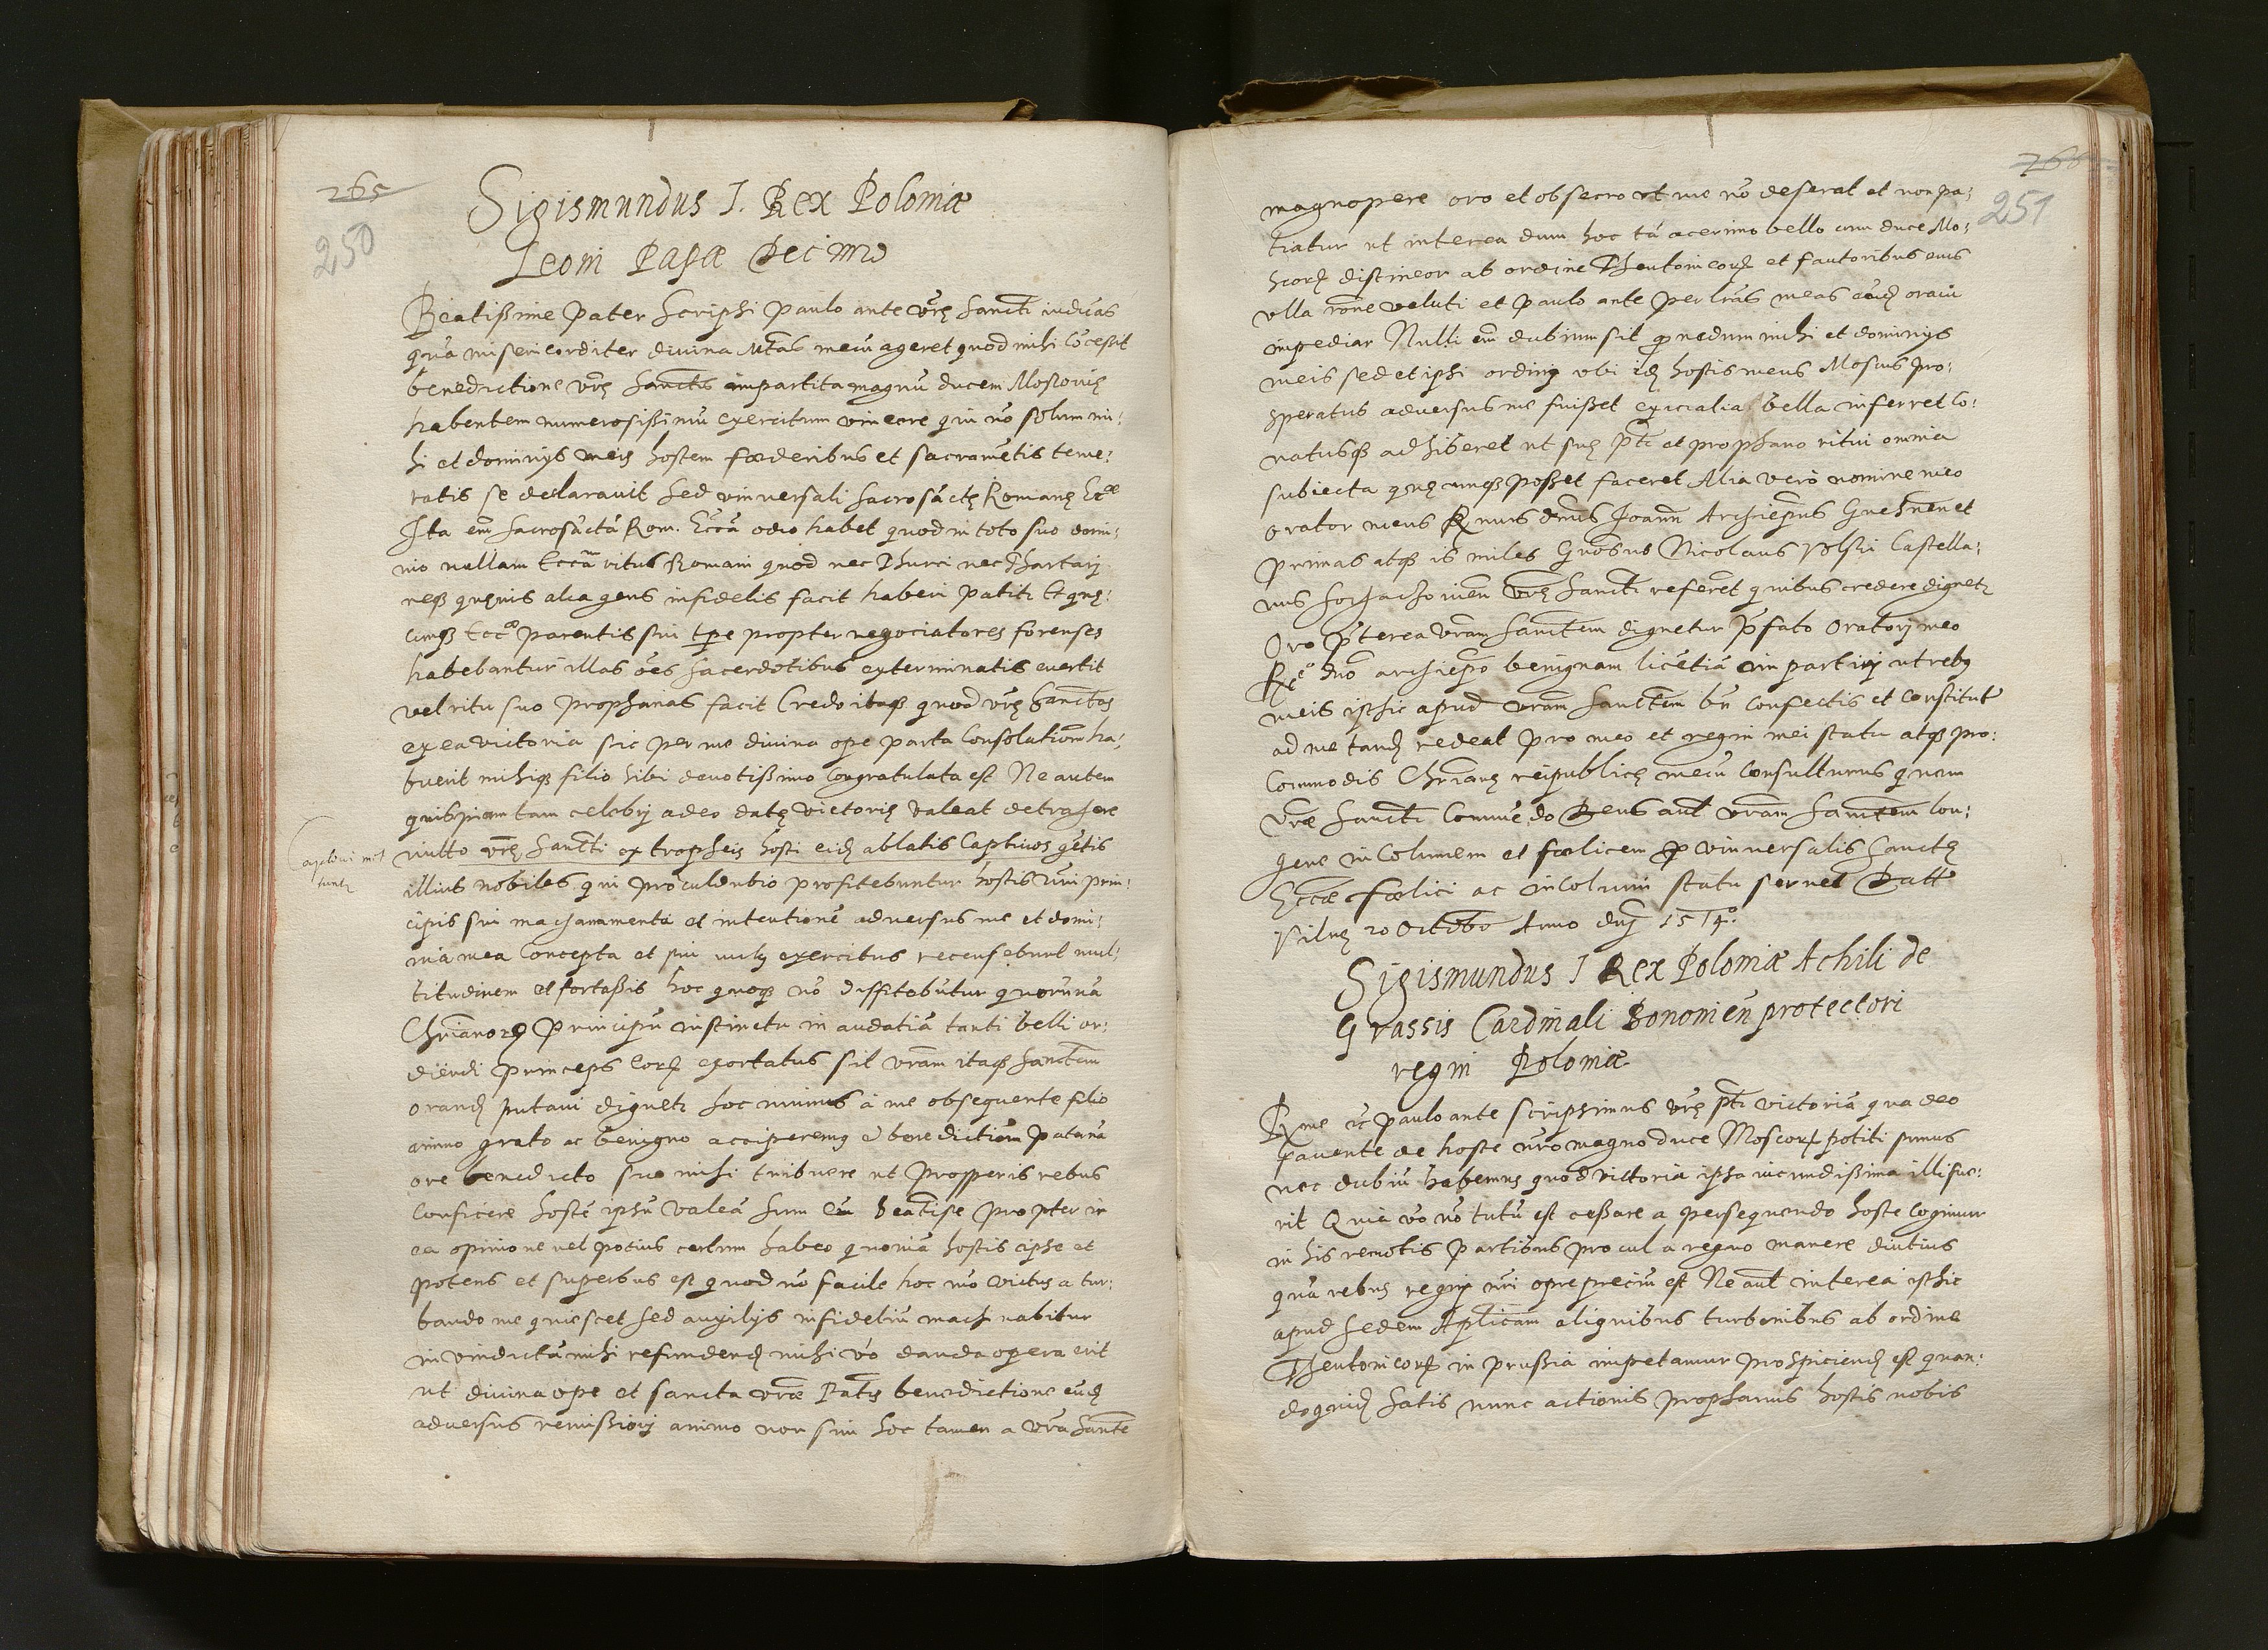 265
250
Sigismundus I. Rex Poloniæ
Leoni Papæ Decimo
Beatißime Pater Scripsi paulo ante vrę Sancti indicas
quã misericorditer divina Mtas mecũ ageret quod mihi cõceßit
benedictione vrę Sanctis impartita magnũ ducem Moscovię
habentem numerosißimũ exercitum vincere qui nõ solum mi:
hi et dominijs meis hostem fœderibus et sacramẽtis teme:
ratis se declaravit Sed vniversali Sacrosãctę Romanę Eccæ
Ita em̃ Sacrosãctã Rom. Eccã odio habet quod in toto suo domi:
nio nullam Eccãm ritus Romani quod nec Thurci nec Thartarj
neqȝ quęvis alia gens infidelis facit haberi patitr Et quę:
cunqȝ Eccæ parentis sui tpe propter negociatores forenses
habebantur illas oẽs sacerdotibus exterminatis evertit
vel ritu suo prophanas facit Credo itaqȝ quod vrę Sanctas
ex ea victoria sic per me divina ope parta Consolationẽm ha:
buerit mihiqȝ filio sibi devotißimo congratulata est Ne autem
quispiam tam celebrj adeo datę victorię valeat detrahere
mitto vrę Sancti ex tropheis hosti eidẽ ablatis Captivos gẽtis
Captivi mit
tuntr
illius nobiles qui proculdubio profitebuntur hostis viri prin:
cipis sui machanamenta et intentionẽ adversus me et domi:
nia mea Concepta et sui recensebunt mul:
titudinem et fortaßis hoc quoqȝ nõ diffitebũtur quorũnã
Chrĩanorȝ Principũ instinctu in audatiã tanti belli or:
diẽndi princeps eorȝ exortatus sit vrãm itaqȝ Sanctẽm
orandȝ putavi dignetr hoc minus à me obsequente filio
animo grato ac benigno benedictiõm paternã
ore benedicto suo mihi tribuere ut prosperis rebus
Conficere hostẽ ipsũ valeã Sum propter in
ea opinione vel potius certum habeo quoniã hostis ipse et
potens et superbus est quod nõ facile hoc mõ victus a tur:
bando me quiescet sed auxilijs infideliũ machinabitur
in vindictã mihi refundendȝ mihi võ danda opera erit
ut divina ope et sancta vræ Patrs benedictione eũdȝ
adversus remißiorj animo non sim hoc tamen a vrã Sancte
266
251
magnopere oro et obsecro ut me nõ deserat et non pa:
tiatur ut interea dum hoc tã acerimo bello cum duce Mo:
scorȝ distineor ab ordine Theutonicorȝ et fautoribus eius
vlla rõne veluti et paulo ante per lrãs meas oravi
impediar Nulli em̃ dubium sit quedum mihi et dominijs
meis sed et ipsi ordinj vbi idȝ hostis meus Moscus pro:
speratus adversus me fuißet exicialia bella inferret Co:
natusqȝ adhiberet ut suę ptĩ et prophano ritui omnia
subiecta quęcunqȝ poßet faceret Alia verò nomine meo
orator meus Rx̃mus dñus Joann Archiepũs Gnesnen et
Primas atqȝ is miles Gnõsus Nicolaus Volski Castella:
nus Sochachovien vrę Sancti referẽt quibus credere dignetr
Oro pterea vrãm Sanctẽm dignetur pfato Oratorj meo
Rx̃o dño archiepõ benignam licẽtiã impartirj ut rebȝ
meis isthic apud vrãm Sanctẽm bñ confectis et constitutẽ
ad me tandȝ redeat pro meo et regni mei statu atqȝ pro:
Commodis Chrĩanę reipublicę mecũ Consulturus quem
vræ Sancti Commẽdo Deus aut vrãm Sanctẽm lon:
geve incolumem et fœlicem p vniversalis Sanctę
Eccæ fœlici ac incolumi statu servet Datt
Vilnę 20 Octobr Anno Dnj 1514o.
Sigismundus I Rex Poloniæ Achili de
Grassis Cardinali Bononieñ protectori
regni Poloniæ
Rx̃me ẽtc paulo ante scripsimus vrę ptĩ victoriã qua deo
favente de hoste nrõ magno duce Moscorȝ potiti sumus
nec dubiũ habemus quod victoria ipsa iucundißima illi fue:
rit Quia võ nõ tutũ est ceßare a persequendo hoste Cogimur
in his remotis partibus procul à regno manere diutius
quã rebus regnj nri operepreciũ est Ne aut interea isthic
apud Sedem Aplicam aliquibus turbinibus ab ordine
Theutonicorȝ in prußia impetamur prospiciendȝ est quan:
doquidȝ Satis nunc actionis prophanus hostis nobis